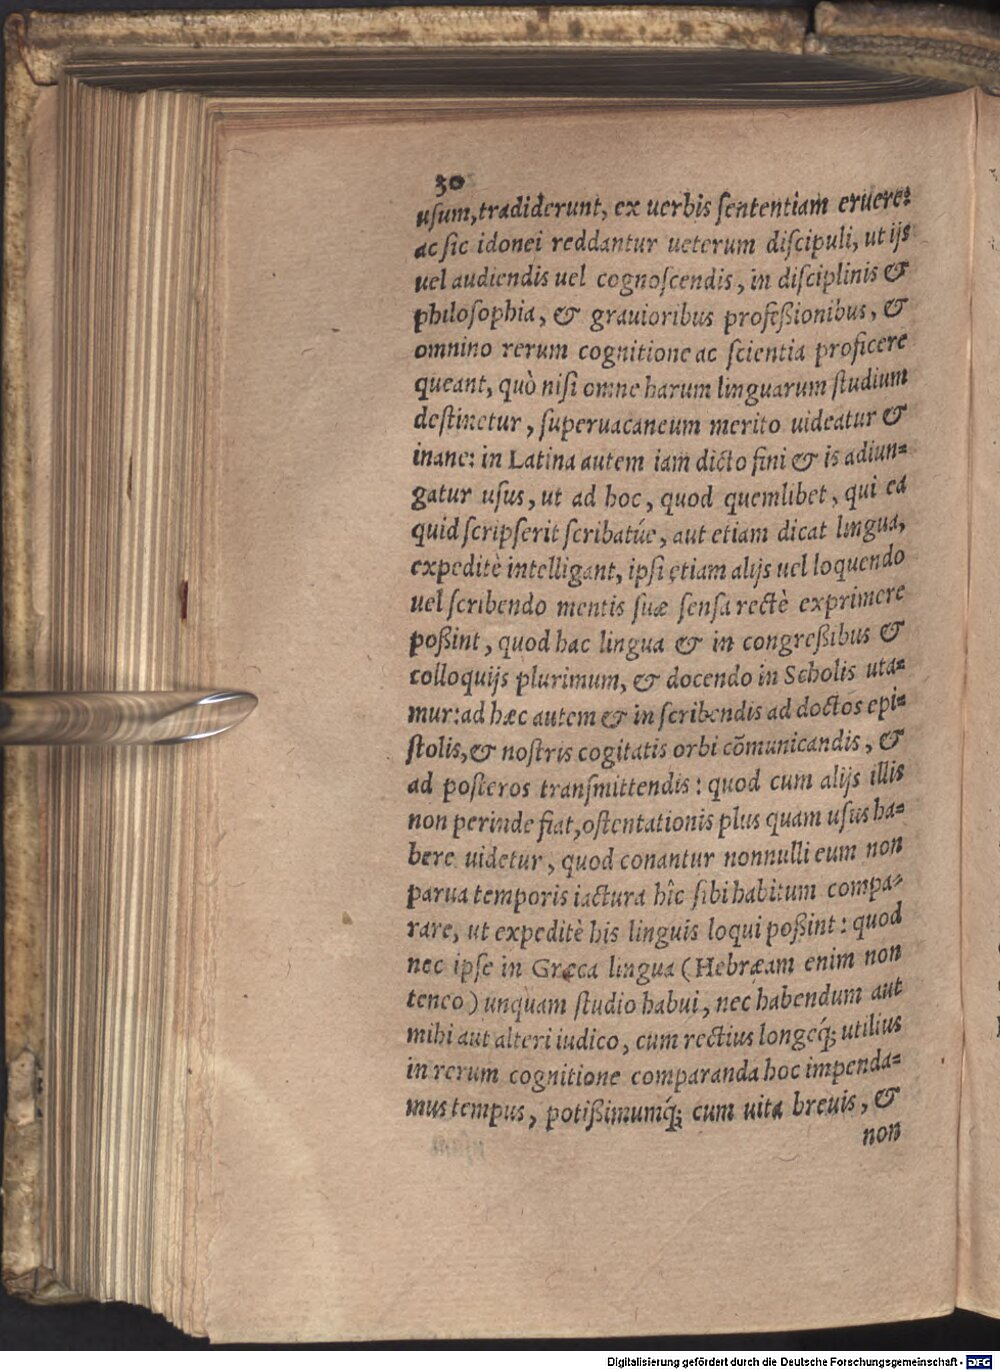 30
uſum, tradiderunt, ex uerbis ſententiam eruere:
ac ſic idonei reddantur ueterum diſcipuli, ut ijs
uel audiendis uel cognoſcendis, in diſciplinis &
philoſophia, & grauioribus profeßionibus, &
omnino rerum cognitione ac ſcientia proficere
queant, quò niſi omne harum linguarum ſtudium
deſtinetur, ſuperuacaneum merito uideatur &
inane: in Latina autem iam dicto fini & is adiun⸗
gatur uſus, ut ad hoc, quod quemlibet, qui ea
quid ſcripſerit ſcribatúe, aut etiam dicat lingua,
expeditè intelligant, ipſi etiam alijs uel loquendo
uel ſcribendo mentis ſuæ ſenſa rectè exprimere
poßint, quod hac lingua & in congreßibus &
colloquijs plurimum, & docendo in Scholis uta⸗
mur: ad hæc autem & in ſcribendis ad doctos epi⸗
ſtolis, & noſtris cogitatis orbi cõmunicandis, &
ad poſteros tranſmittendis: quod cum alijs illis
non perinde fiat, oſtentationis plus quam uſus ha⸗
bere uidetur, quod conantur nonnulli eum non
parua temporis iactura hîc ſibi habitum compa⸗
rare, ut expeditè his linguis loqui poßint: quod
nec ipſe in Græca lingua (Hebræam enim non
teneo) unquam ſtudio habui, nec habendum aut
mihi aut alteri iudico, cum rectius longeq́; utilius
in rerum cognitione comparanda hoc impenda⸗
mus tempus, potißimumq́; cum uita breuis, &
non
Digitalisierung gefördert durch die Deutsche Forschungsgemeinschaft - DFG